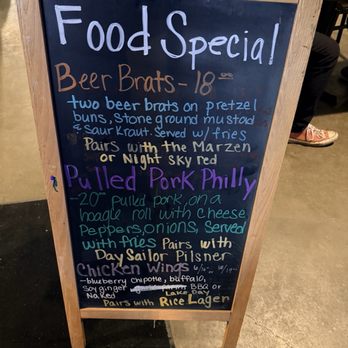 Food Special
Beer Brats - 18
two beer brats on pretzel
buns, stone ground mustard
& Saur Kraut. Served w/ fries
Pairs with the Marzen
or Night Sky red
Pulled Pork Philly
-20- pulled pork, on a
hoagie roll with cheese
Peppers, onions, served
with fries Pairs with
Day Sailor Pilsner
Chicken Wings
-blueberry chipotle, buffalo,
Soy ginger BBQ or
Naked Lake Day
Pairs with Rice Lager